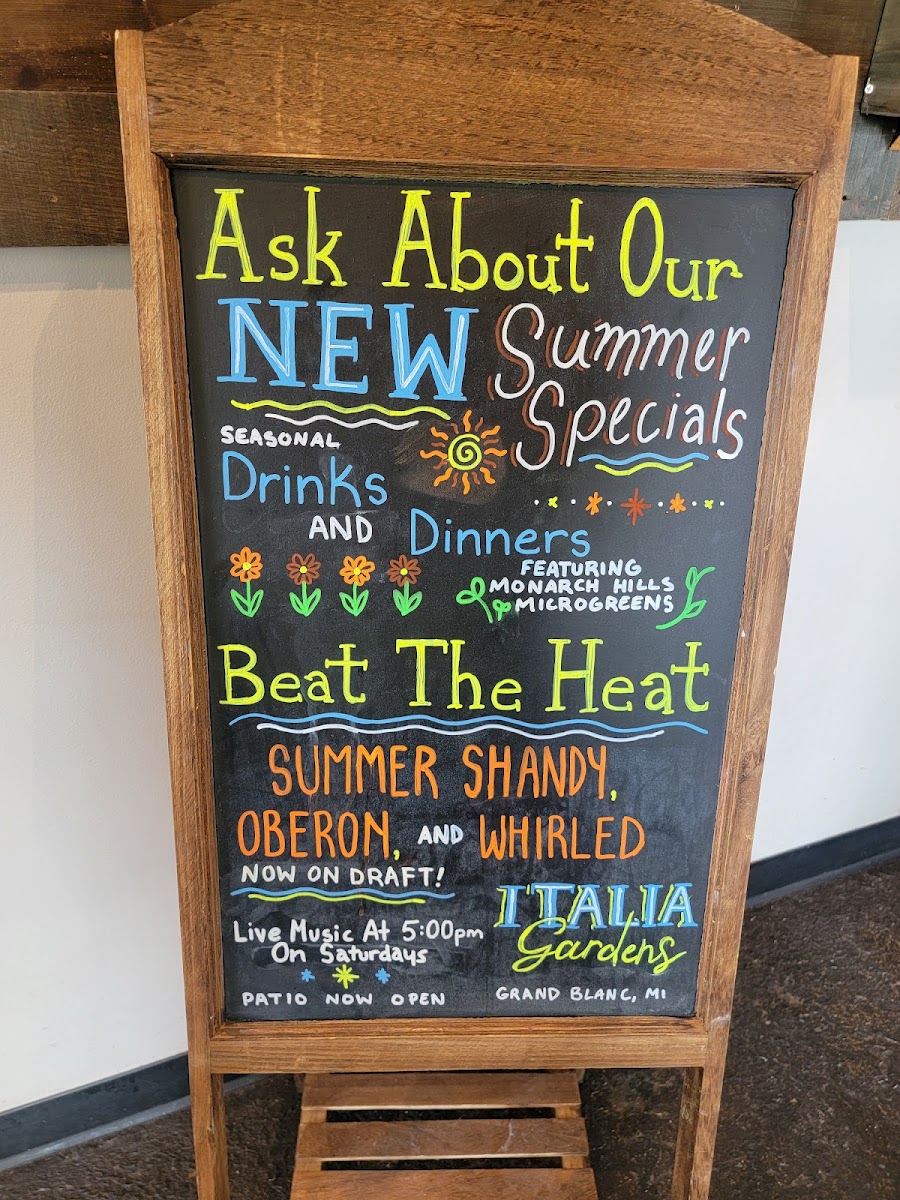 Ask About Our
NEW Summer
Specials
SEASONAL
Drinks
AND Dinners
FEATURING
MONARCH HILLS
MICROGREENS
Beat The Heat
SUMMER SHANDY,
OBERON, AND WHIRLED
NOW ON DRAFT!
Live Music At 5:00pm
On Saturdays
PATIO NOW OPEN
ITALIA
Gardens
GRAND BLANC, MI